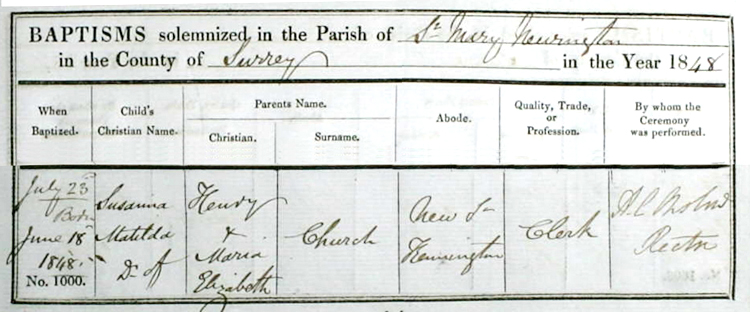 BAPTISMS solemnized in the Parish of St Mary Newington
in the County of Surrey in the Year 1848
When Baptized.
Child's Christian Name.
Parents Name.
Christian.
Surname.
Abode.
Quality, Trade, or Profession.
By whom the Ceremony was performed.
July 23d
Born
June 18th
1848.
No. 1000.
Susanna
Matilda
Dr of
Henry
&
Maria
Elizabeth
Church
New St
Kennington
Clerk
Rector